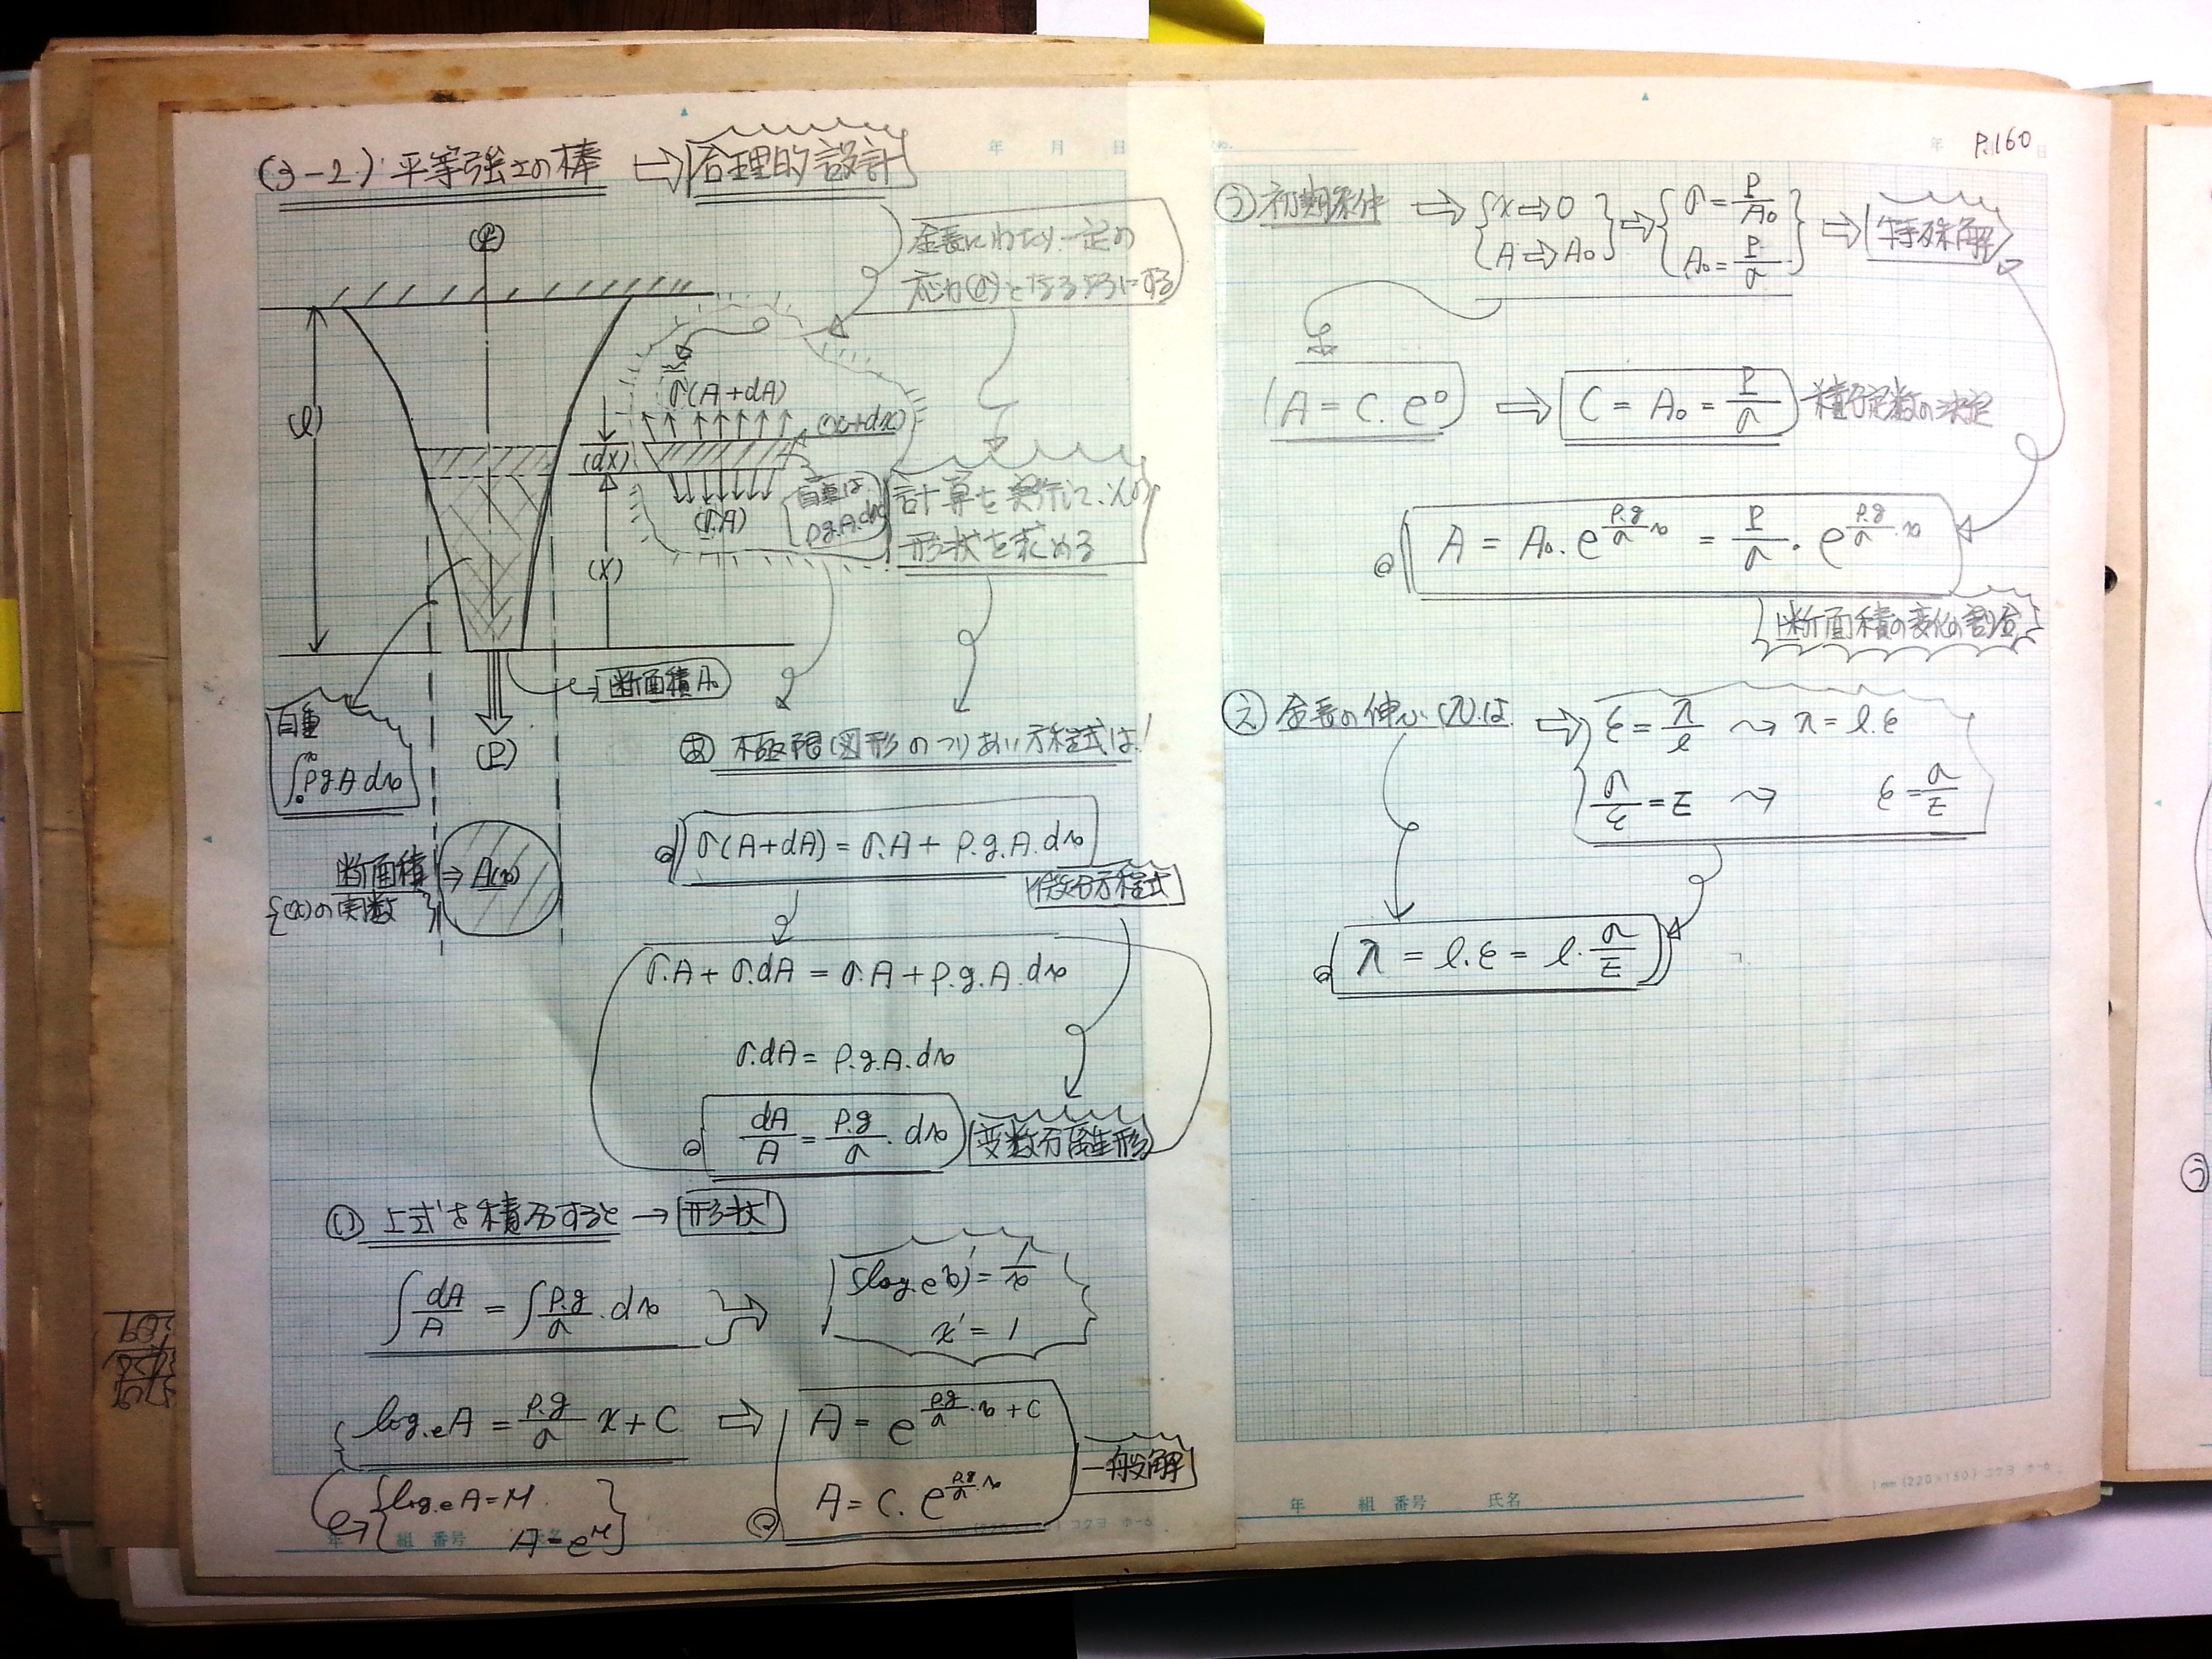 (3-2) 平等強さの棒 ⇨ 合理的設計
全長にわたり、一定の
応力(σ)となるようにする
(℄)
(l)
σ(A+dA)
(x+dx)
(dx)
(σ.A)
自重は、
ρ.g.A.dx
計算を実行して、
形状を求める
(x)
断面積A₀
自重
∫₀ˣ ρ.g.A.dx
(P)
断面積 → A(x)
{(x)の関数}
あ 極限図形のつりあい方程式は!
σ(A+dA) = σ.A + ρ.g.A.dx
微分方程式
σ.A + σ.dA = σ.A + ρ.g.A.dx
σ.dA = ρ.g.A.dx
dA/A = ρ.g/σ . dx
変数分離形
い 上式を積分すると → 形状
∫ dA/A = ∫ ρ.g/σ . dx
(log.e x)' = 1/x
x' = 1
log.e A = ρ.g/σ x + C ⇨ A = e^(ρ.g/σ .x + C)
A = C. e^(ρ.g/σ .x)
一般解
log.e A = M.
A = e^M
年 組 番号 氏名
年 月 日
No.
年 P.160 日
う 初期条件 ⇨ { x ⇨ 0 } ⇨ { σ = P/A₀ } ⇨ 特殊解
A ⇨ A₀ A₀ = P/σ
A = C. e⁰ ⇨ C = A₀ = P/σ 積分定数の決定
A = A₀. e^(ρ.g/σ .x) = P/σ . e^(ρ.g/σ .x)
断面積の変化の割合
え 全長の伸び(λ)は ⇨ ε = λ/l ⤳ λ = l.ε
σ/ε = E ⤳ ε = σ/E
λ = l.ε = l. σ/E
1mm (220×150) コクヨ ホ-6
年 組 番号 氏名